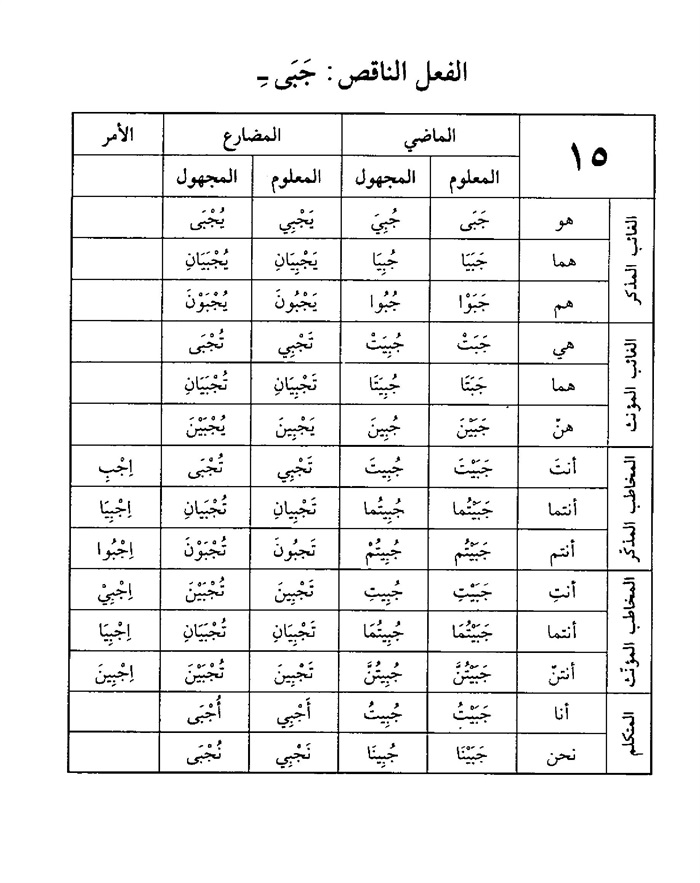 الفعل الناقص : جَبَى ـِ
١٥ الماضي المضارع الأمر
المعلوم المجهول المعلوم المجهول
الغائب المذكر
هو جَبَى جُبِيَ يَجْبِي يُجْبَى
هما جَبَيَا جُبِيَا يَجْبِيَانِ يُجْبَيَانِ
هم جَبَوْا جُبُوا يَجْبُونَ يُجْبَوْنَ
الغائب المؤنث
هي جَبَتْ جُبِيَتْ تَجْبِي تُجْبَى
هما جَبَتَا جُبِيَتَا تَجْبِيَانِ تُجْبَيَانِ
هنّ جَبَيْنَ جُبِينَ يَجْبِينَ يُجْبَيْنَ
المخاطب المذكر
أنتَ جَبَيْتَ جُبِيتَ تَجْبِي تُجْبَى اِجْبِ
أنتما جَبَيْتُما جُبِيتُما تَجْبِيانِ تُجْبَيانِ اِجْبِيَا
أنتم جَبَيْتُم جُبِيتُمْ تَجبُونَ تُجْبَوْنَ اِجْبُوا
المخاطب المؤنث
أنتِ جَبَيْتِ جُبِيتِ تَجْبِينَ تُجْبَيْنَ اِجْبِيْ
أنتما جَبَيْتُمَا جُبِيتُمَا تَجْبِيَانِ تُجْبَيَانِ اِجْبِيَا
أنتنّ جَبَيْتُنَّ جُبِيتُنَّ تَجْبِينَ تُجْبَيْنَ اِجْبِينَ
المتكلم
أنا جَبَيْتُ جُبِيتُ أَجْبِي أُجْبَى
نحن جَبَيْنَا جُبِينَا نَجْبِي نُجْبَى